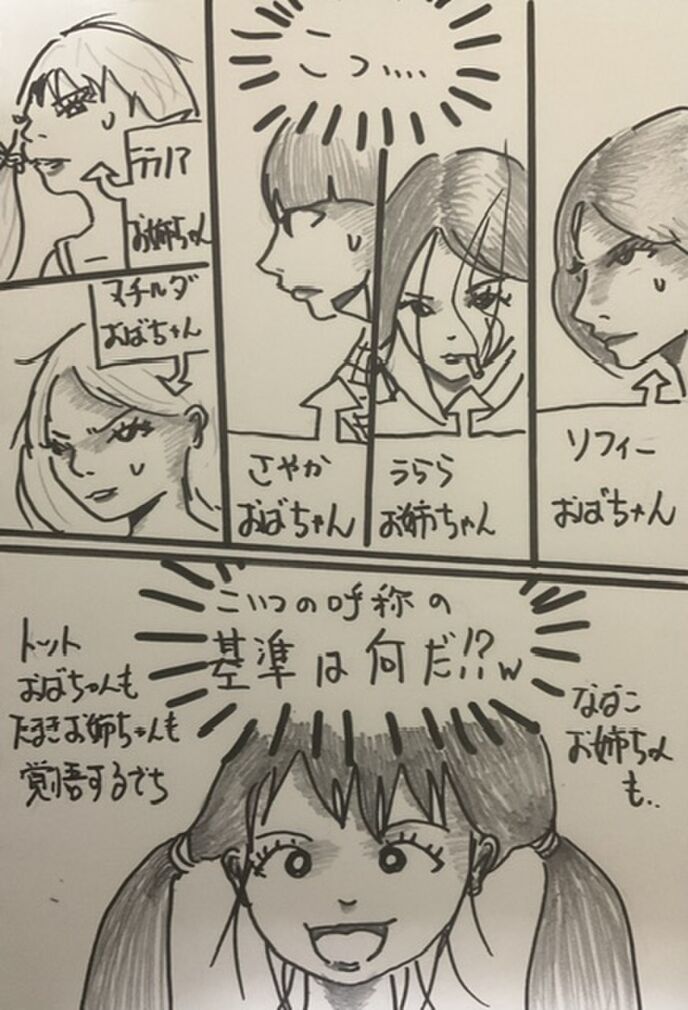 こっ....
ソフィー
おばちゃん
うらら
お姉ちゃん
さやか
おばちゃん
お姉ちゃん
マチルダ
おばちゃん
こいつの呼称の
基準は何だ!?w
ななこ
お姉ちゃん
も..
トット
おばちゃんも
たまきお姉ちゃんも
覚悟するでち